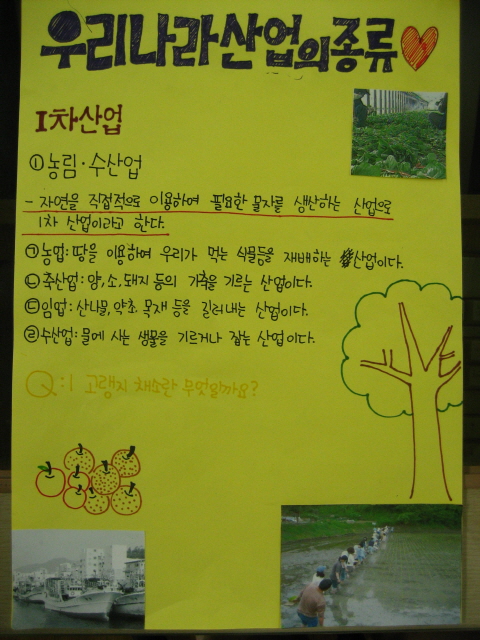 우리나라산업의종류
I차산업
①농림·수산업
- 자연을 직접적으로 이용하여 필요한 물자를 생산하는 산업으로
1차 산업이라고 한다.
㉠농업:땅을 이용하여 우리가 먹는 식물등을 재배하는 산업이다.
㉡축산업:양,소,돼지 등의 가축을 기르는 산업이다.
㉢임업:산나물,약초 목재 등을 길러내는 산업이다.
㉣수산업:물에 사는 생물을 기르거나 잡는 산업이다.
Q:1 고랭지 채소란 무엇일까요?